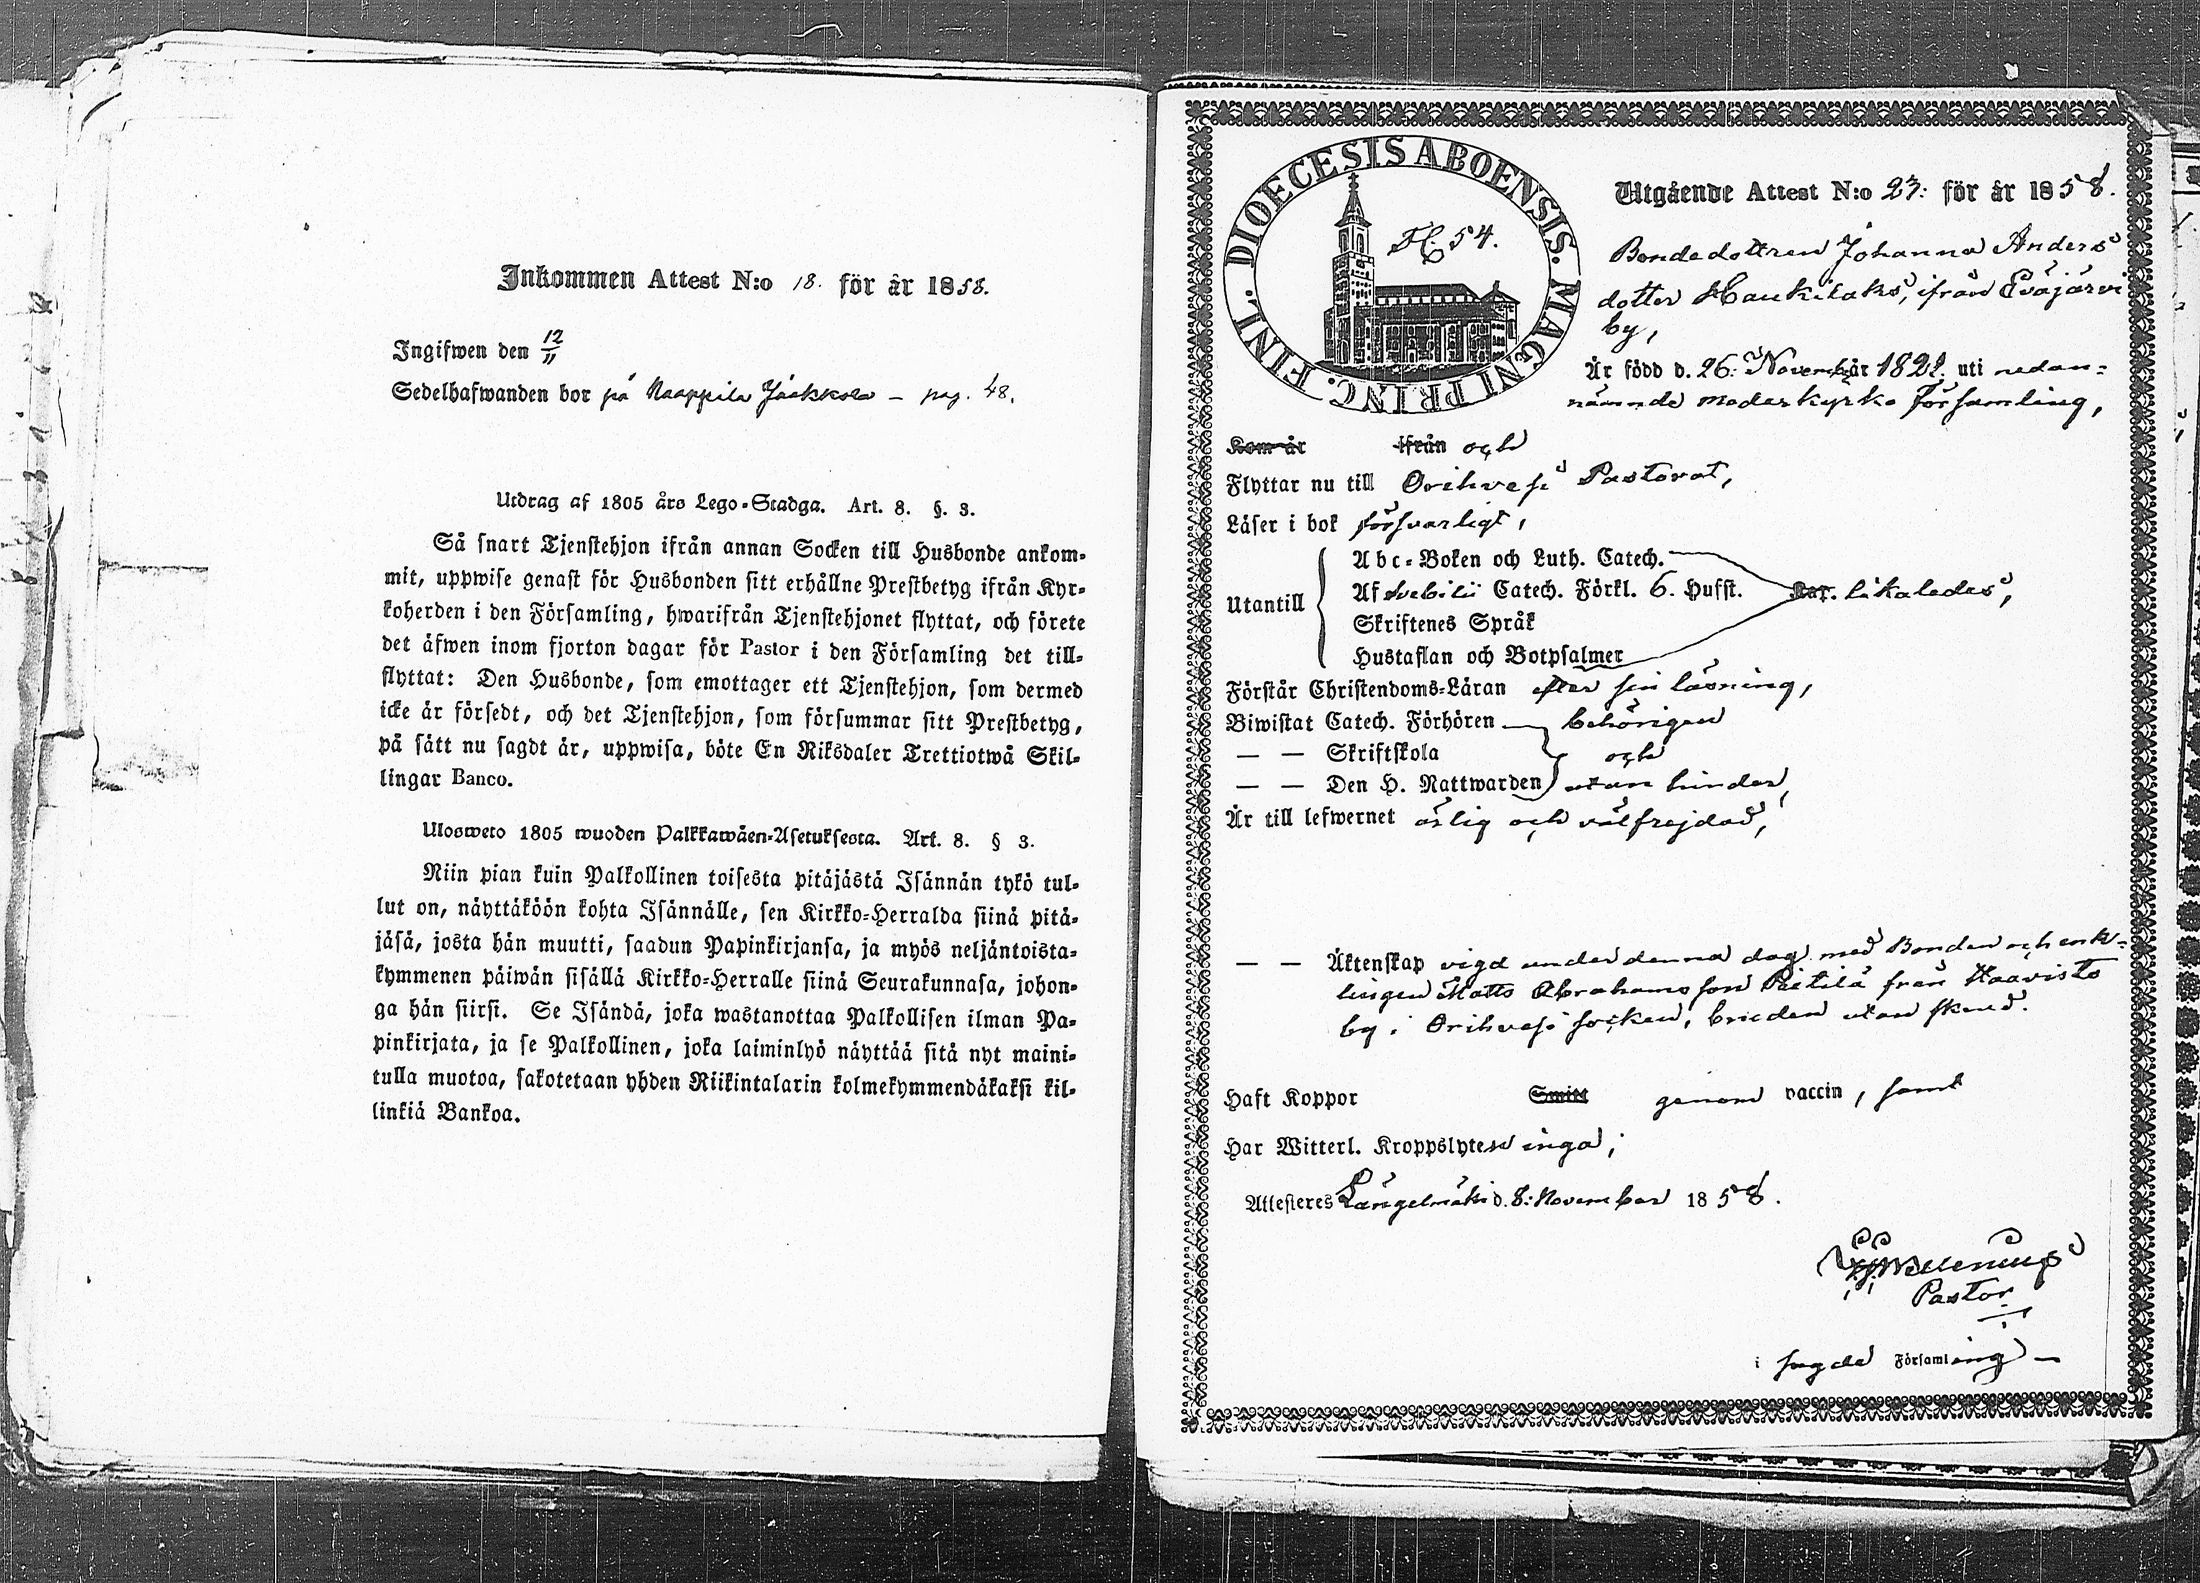 Inkommen Attest N:o 18. för år 1858.
Ingifwen den 12/11
Sedelhafwanden bor på Naappila Jaakkola – pag. 48.
Utdrag af 1805 års Lego-Stadga. Art. 8. §. 3.
Så snart Tjenstehjon ifrån annan Socken till Husbonde ankom-
mit, uppwise genast för Husbonden sitt erhållne Prestbetyg ifrån Kyr-
koherden i den Församling, hwarifrån Tjenstehjonet flyttat, och förete
det äfwen inom fjorton dagar för Pastor i den Församling det till-
flyttat: Den Husbonde, som emottager ett Tjenstehjon, som dermed
icke är försedt, och det Tjenstehjon, som försummar sitt Prestbetyg,
på sätt nu sagdt är, uppwisa, böte En Riksdaler Trettiotwå Skil-
lingar Banco.
Ulosweto 1805 wuoden Palkkawäen-Asetuksesta. Art. 8. § 3.
Niin pian kuin Palkollinen toisesta pitäjästä Isännän tykö tul-
lut on, näyttäköön kohta Isännälle, sen Kirkko-Herralda siinä pitä-
jäsä, josta hän muutti, saadun Papinkirjansa, ja myös neljäntoista-
kymmenen päiwän sisällä Kirkko-Herralle siinä Seurakunnasa, johon-
ga hän siirsi. Se Isändä, joka wastanottaa Palkollisen ilman Pa-
pinkirjata, ja se Palkollinen, joka laiminlyö näyttää sitä nyt maini-
tulla muotoa, sakotetaan yhden Riikintalarin kolmekymmendäkaksi kil-
linkiä Bankoa.
DIOECESIS ABOENSIS. MAGNI PRINC. FINL.
54.
Utgående Attest N:o 23: för år 1858.
Bondedottren Johanna Anders
dotter Haukilaks, ifrån Eväjärvi
by,
Är född d. 26: Novemb. år 182 uti nedan-
nämnde moderkyrko Församling,
Kom år ifrån och
Flyttar nu till Orihvesi Pastorat,
Läser i bok försvarligt,
Utantill
Abc-Boken och Luth. Catech.
Af Svebilii Catech. Förkl. 6. Hufst. likaledes,
Skriftenes Språk
Hustaflan och Botpsalmer
Förstår Christendoms-Läran efter sin läsning,
Biwistat Catech. Förhören — behörigen
— — Skriftskola och
— — Den H. Nattwarden utan hinder,
Är till lefwernet ärlig och välfrejdad,
— — Äktenskap vigd under denna dag med Bonden och enk-
lingen Matts Abrahamsson Pietilä från Haavisto
by i Orihvesi socken, bruden utan skrud.
Haft Koppor Smitt genom vaccin, samt
Har Witterl. Kroppslyten inga;
Attesteres Längelmäki d. 8: November 1858.
Pastor
i sagde Församling —